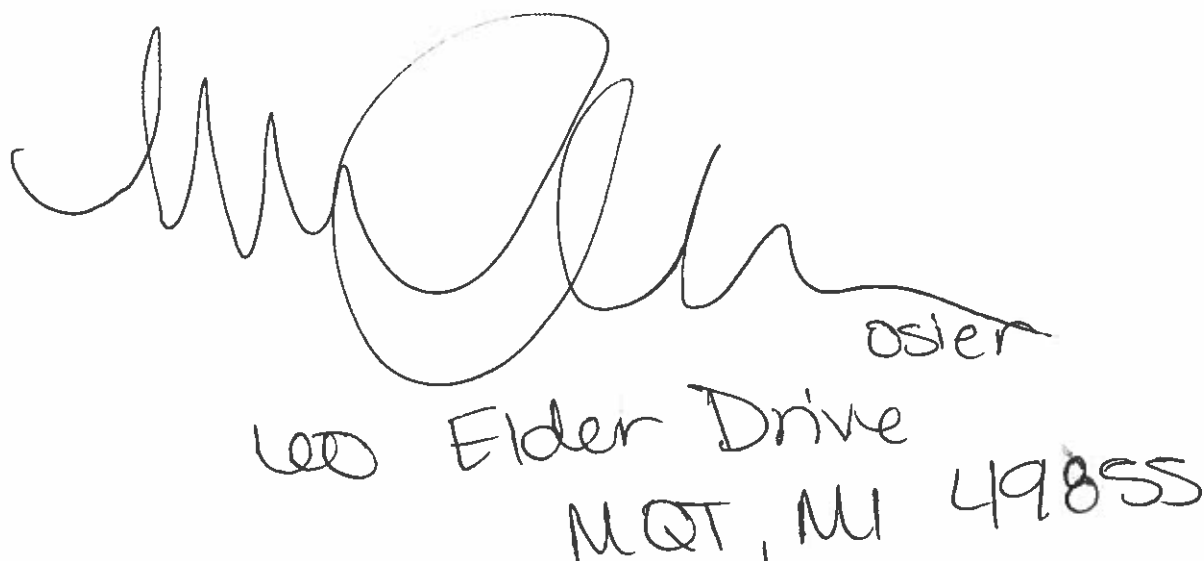 osier
600 Elder Drive
MQT, MI 49855